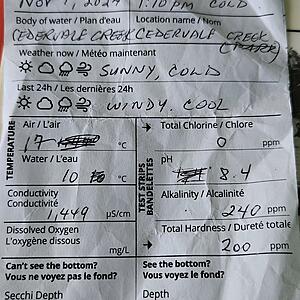 Nov 7, 2024 1:10 pm COLD
Body of water / Plan d'eau Location name / Nom
CEDERVALE CREEK CEDERVALE CREEK
(PARK)
Weather now / Météo maintenant
SUNNY, COLD
Last 24h / Les dernières 24h
WINDY, COOL
TEMPERATURE
Air / L'air
17 °C
Water / L'eau
10 °C
Conductivity
Conductivité
1,449 µS/cm
Dissolved Oxygen
L'oxygène dissous
mg/L
TEST STRIPS
BANDELETTES
Total Chlorine / Chlore
0 ppm
pH
8.4
Alkalinity / Alcalinité
240 ppm
Total Hardness / Dureté totale
200 ppm
Can't see the bottom?
Vous ne voyez pas le fond?
Secchi Depth
See the bottom?
Vous voyez le fond?
Depth